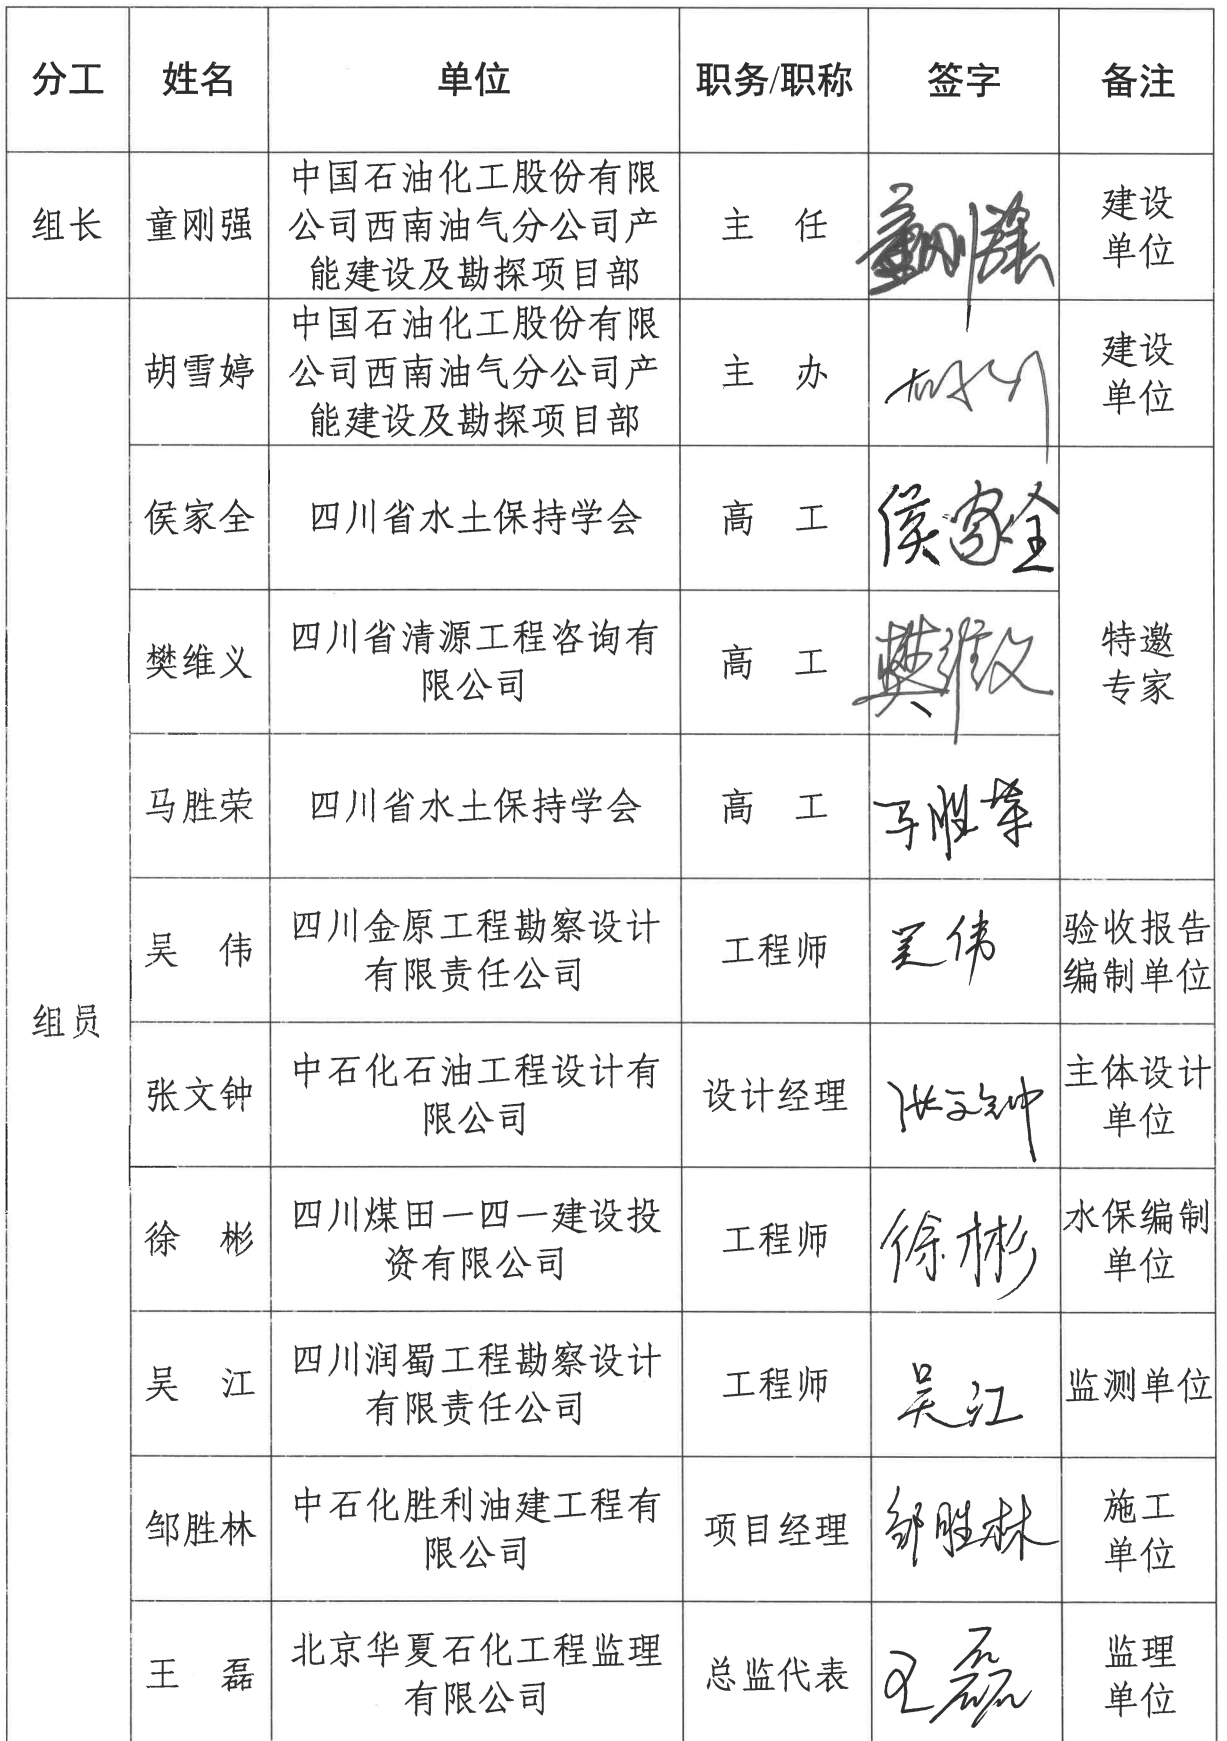 分工 姓名 单位 职务/职称 签字 备注
组长 童刚强 中国石油化工股份有限
公司西南油气分公司产
能建设及勘探项目部 主 任 童刚强 建设
单位
组员
胡雪婷 中国石油化工股份有限
公司西南油气分公司产
能建设及勘探项目部 主 办 建设
单位
侯家全 四川省水土保持学会 高 工 侯家全 特邀
专家
樊维义 四川省清源工程咨询有
限公司 高 工 樊维义
马胜荣 四川省水土保持学会 高 工 马胜荣
吴 伟 四川金原工程勘察设计
有限责任公司 工程师 吴伟 验收报告
编制单位
张文钟 中石化石油工程设计有
限公司 设计经理 张文钟 主体设计
单位
徐 彬 四川煤田一四一建设投
资有限公司 工程师 徐彬 水保编制
单位
吴 江 四川润蜀工程勘察设计
有限责任公司 工程师 吴江 监测单位
邹胜林 中石化胜利油建工程有
限公司 项目经理 邹胜林 施工
单位
王 磊 北京华夏石化工程监理
有限公司 总监代表 王磊 监理
单位